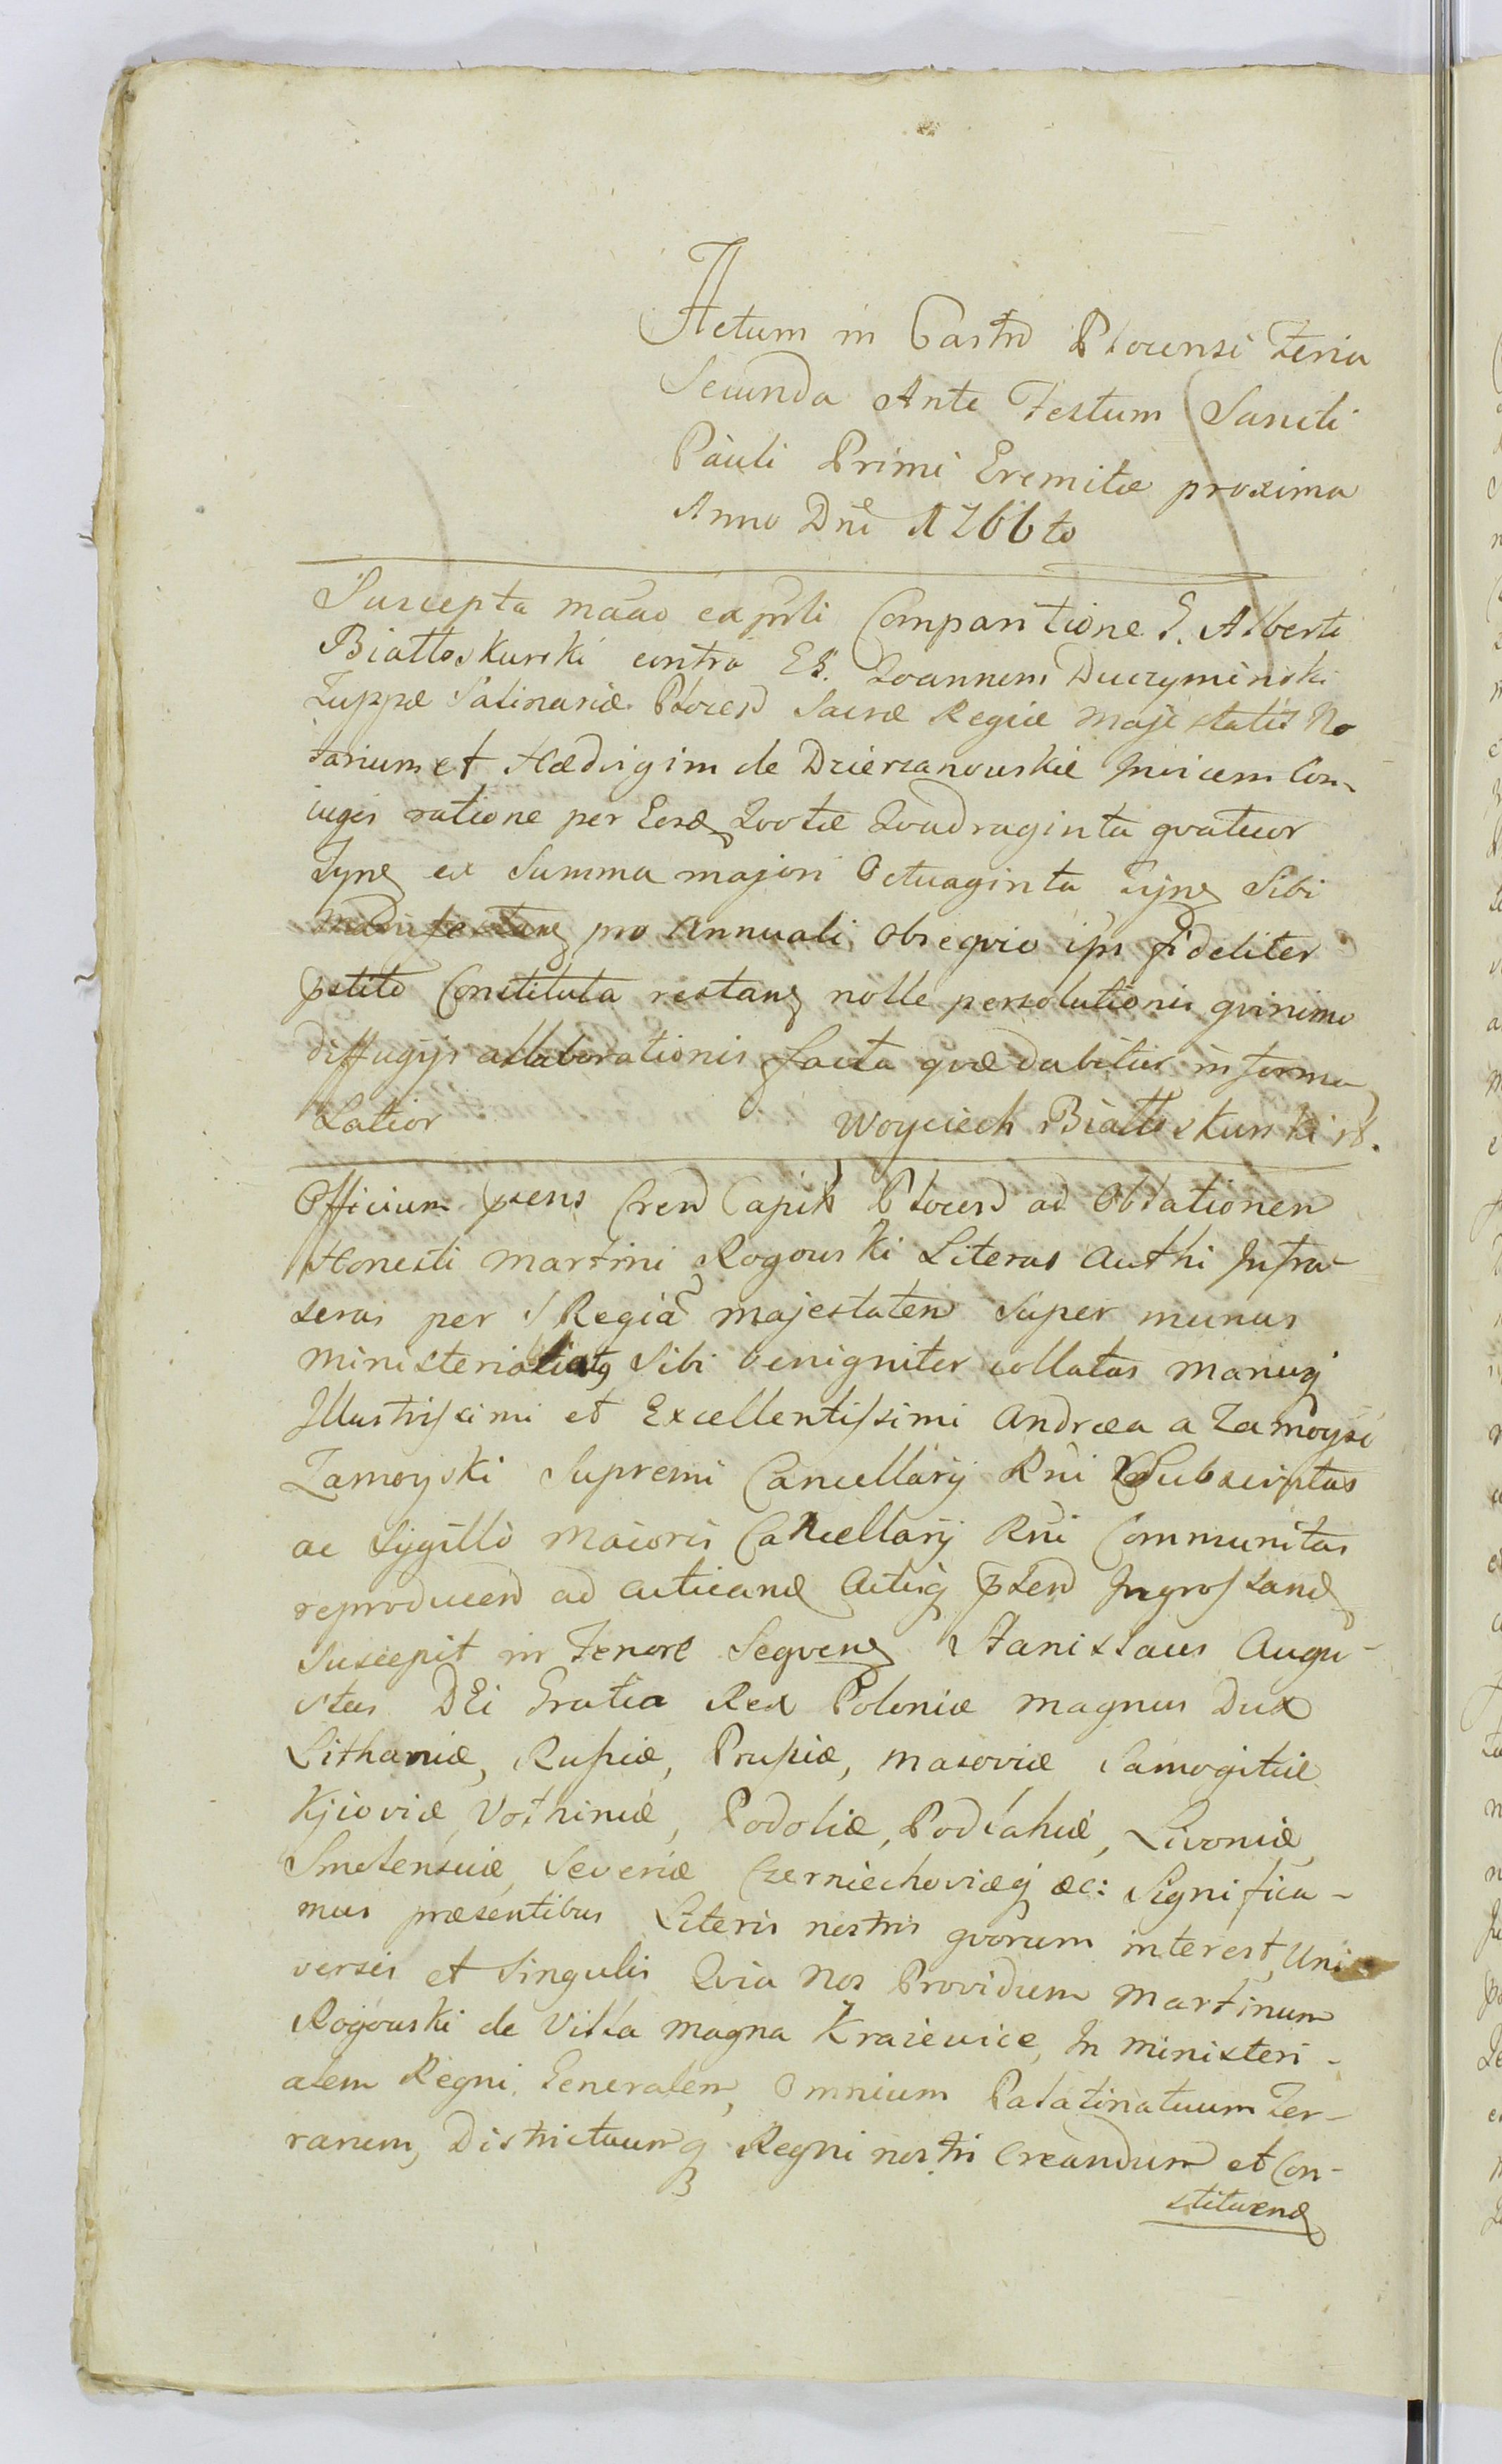 Actum in Castro Plocensi Feria
Secunda Ante Festum Sancti
Pauli Primi Eremitæ proxima
Anno Dnī 1766to
Suscepta ex Comparitione G. Alberti
Białłoskurski contra GG. Joannem Duczyminski
Zuppæ Salinariæ Plocen Sacræ Regiæ Majestatis No
tarium et Hædvigim de Dzierzanowskie Invicem Con-
iuges ratione per Quadraginta qvatuor
ex Summa majori Octuaginta Sibi
pro Annuali obseqvio ipsi fideliter
Constituta restan nolle persolutionis qvinimo
diffugijs allaborationis facta qvæ dabitur in forma
Latior Woyciech Białłoskurski
Officium Capit Plocen ad Oblationem
Honesti Martini Rogowski Literas Authi Infra-
seras per S Regiā Majestatem Super munus
Sibi benigniter collatas manuq
Illustrissimi et Excellentissimi Andræa a Zamoysc
Zamoyski Supremi Cancellarij Rni Subscriptas
ac Sygillo Maioris Cancellarij Rni Communitas
reproducen ad acticand Actisq Ingrossand
Suscepit in Tenore Seqven Stanislaus Augu-
stus DEi Gratia Rex Poloniæ Magnus Dux
Lithaniæ, Russiæ, Prussiæ, Masoviæ Samogitiæ
Kijoviæ, Volhiniæ, Podoliæ, Podlahiæ, Livoniæ,
Smolensciæ, Severiæ Czerniechoviæq æc: Significa-
mus præsentibus Literis nostris qvorum interest, Uni
versis et Singulis Qvia Nos Providum Martinum
Rogowski de Villa magna Kraiewice, In Ministeri-
alem Regni Generalem, Omnium Palatinatuum Ter-
rarum, Districtuumq Regni nostri Creandum et Con-
stituend